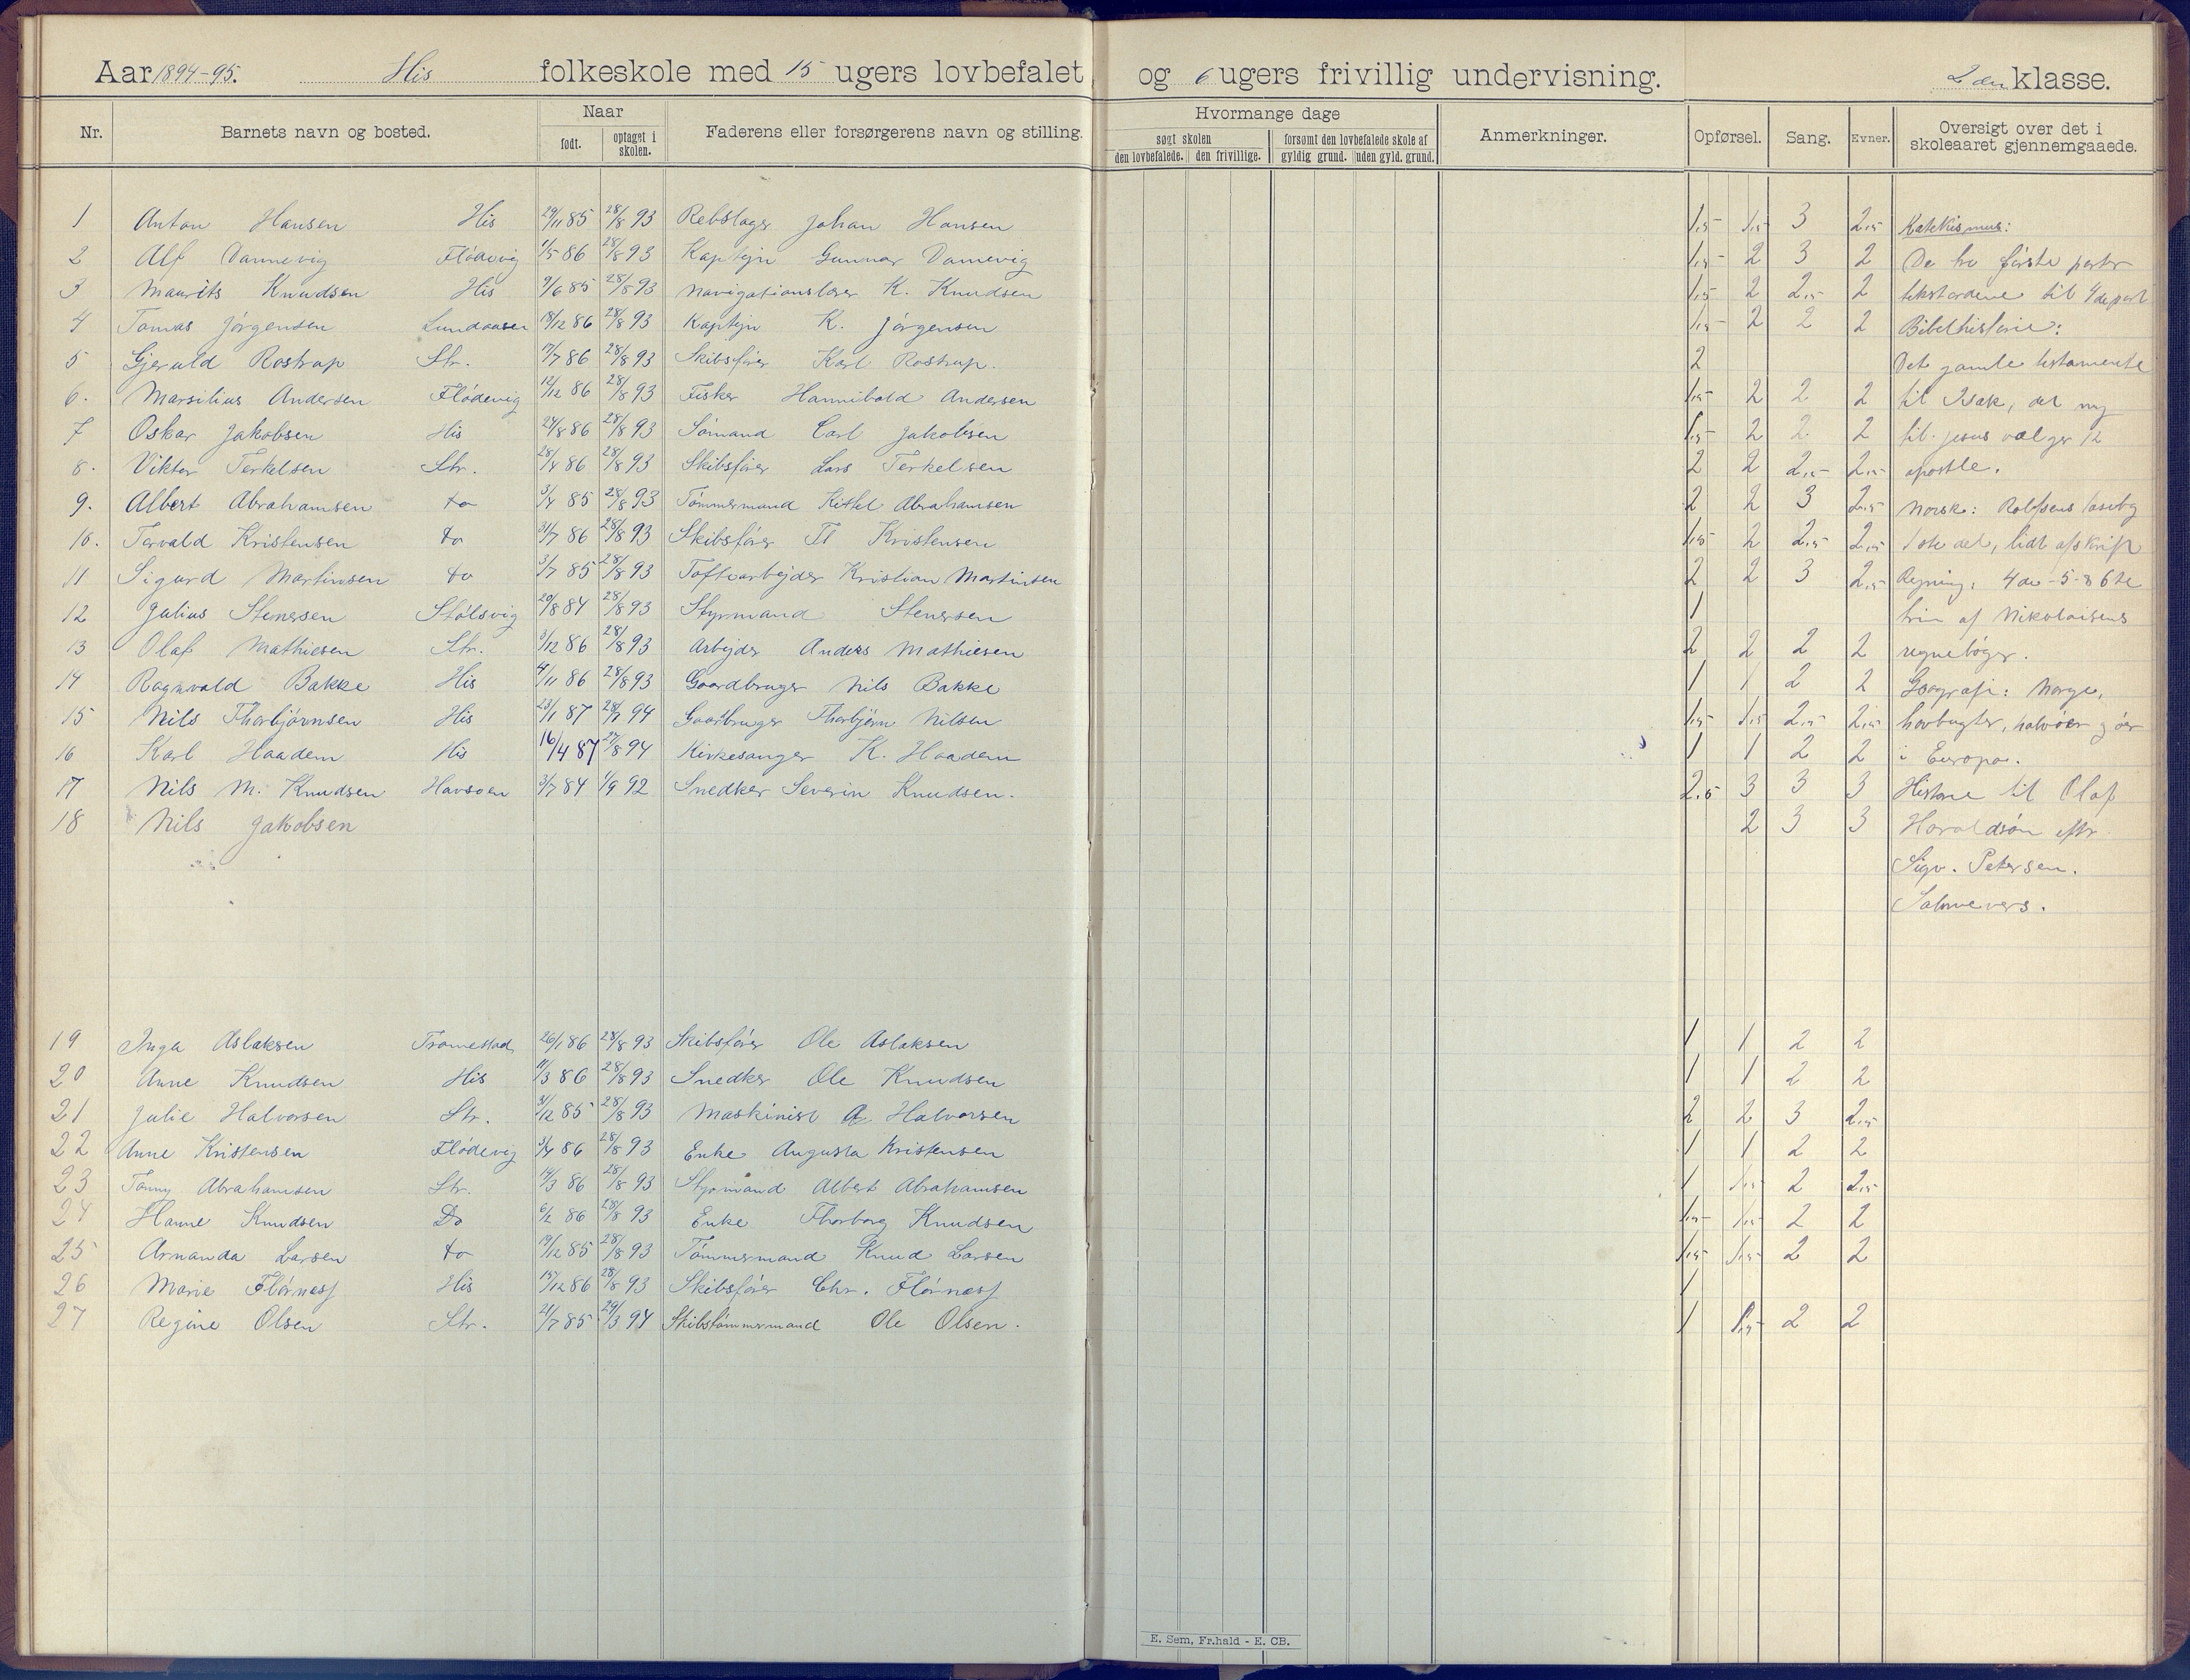 Aar 1894-95. His folkeskole med 15 ugers lovbefalet og 6 ugers frivillig undervisning. 2den klasse.
Nr. Barnets navn og bosted. Naar født. optaget i skolen. Faderens eller forsørgerens navn og stilling. Hvormange dage søgt skolen den lovbefalede. den frivillige. forsømt den lovbefalede skole af gyldig grund. uden gyld. grund. Anmerkninger. Opførsel. Sang. Evner. Oversigt over det i skoleaaret gjennemgaaede.
1 Anton Hansen His 29/11 85 28/8 93 Rebslager Johan Hansen 1,5 1,5 3 2,5 Katekismus:
2 Alf Dannevig Flødevig 1/5 86 28/8 93 Kaptejn Gunnar Dannevig 1,5 2 3 2 De tre første parter
3 Maurits Knudsen His 9/6 85 28/8 93 Navigationslærer K. Knudsen 1,5 2 2,5 2 tekstordene til 4de part
4 Tomas Jørgensen Lundaasen 18/12 86 28/8 93 Kaptejn K. Jørgensen 1,5 2 2 2 Bibelhistorie:
5 Gjerald Rostrup Str. 17/7 86 28/8 93 Skibsfører Karl Rostrup. 2 Det gamle testamente
6. Marsilius Andersen Flødevig 12/12 86 28/8 93 Fisker Hannibald Andersen 1,5 2 2 2 til Isak, det ny
7 Oskar Jakobsen His 24/8 86 28/8 93 Sømand Carl Jakobsen 1,5 2 2 2 til Jesus vælger 12
8. Viktor Terkelsen Str. 28/4 86 28/8 93 Skibsfører Lars Terkelsen 2 2 2,5 2,5 apostle.
9. Albert Abrahamsen do 3/4 85 28/8 93 Tømmermand Kittel Abrahamsen 2 2 3 2,5 Norsk: Rolfsens læsebog
10. Torvald Kristensen do 31/7 86 28/8 93 Skibsfører Tl Kristensen 1,5 2 2,5 2,5 1ste del, lidt afskrift
11 Sigurd Martinsen do 3/7 85 28/8 93 Toftearbejder Kristian Martinsen 2 2 3 2,5 Regning: 4de-5-& 6te
12 Julius Stenersen Stølsvig 20/8 84 28/8 93 Styrmand Stenersen 1 trin af Nikolaisens
13 Olaf Mathiesen Str. 3/12 86 28/8 93 Arbejder Anders Mathiesen 2 2 2 2 regnebøger.
14 Ragnvald Bakke His 4/11 86 28/8 93 Gaardbruger Nils Bakke 1 1 2 2 Geografi: Norge,
15 Nils Thorbjørnsen His 23/1 87 94 Gaardbruger Thorbjørn Nilsen 1,5 1,5 2,5 2,5 havbugter, halvøer g øer
16 Karl Haadem His 16/4 87 27/8 94 Kirkesanger K. Haadem 1 1 2 2 i Europa.
17 Nils M. Knudsen Havsøen 3/7 84 1/9 92 Snedker Severin Knudsen. 2,5 3 3 3 Historie til Olaf
18 Nils Jakobsen 2 3 3 Haraldsøn efter
Sigv. Petersen.
Salmevers.
19 Inga Aslaksen Tromestad 26/1 86 28/8 93 Skibsfører Ole Aslaksen 1 1 2 2
20 Anne Knudsen His 11/3 86 28/8 93 Snedker Ole Knudsen 1 1 2 2
21 Julie Halvorsen Str. 31/12 85 28/8 93 Maskinist A. Halvorsen 2 2 3 2,5
22 Anne Kristensen Flødevig 3/4 86 28/8 93 Enke Augusta Kristensen 1 1 2 2
23 Tomy Abrahamsen Str. 14/3 86 28/8 93 Styrmand Albert Abrahamsen 1 1,5 2 2,5
24 Hanne Knudsen Do 6/2 86 28/8 93 Enke Thorborg Knudsen 1,5 1,5 2 2
25 Armanda Larsen do 19/12 85 28/8 93 Tømmermand Knud Larsen 1,5 1,5 2 2
26 Marie Flørness His 15/12 86 28/8 93 Skibsfører Chr. Flørness 1
27 Regine Olsen Str. 21/7 85 29/3 94 Skibstømmermand Ole Olsen. 1 1,5 2 2
E. Sem, Fr.hald - E. CB.